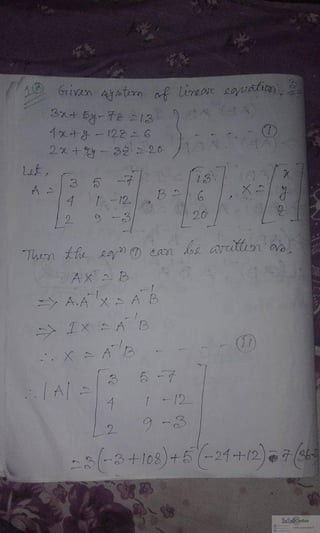 Given system of linear equation.
3x + 5y - 7z = 13
4x + y - 12z = 6
2x + 9y - 3z = 20
Let,
A = [3 5 -7
4 1 -12
2 9 -3], B = [13
6
20], X = [x
y
z]
Then the eqn ① can be written as.
AX = B
=> A.A⁻¹X = A⁻¹B
=> IX = A⁻¹B
∴ X = A⁻¹B - - - - ⑪
∴ |A| = [3 5 -7
4 1 -12
2 9 -3]
= 3(-3 + 108) + 5(-24 + 12) - 7(36-